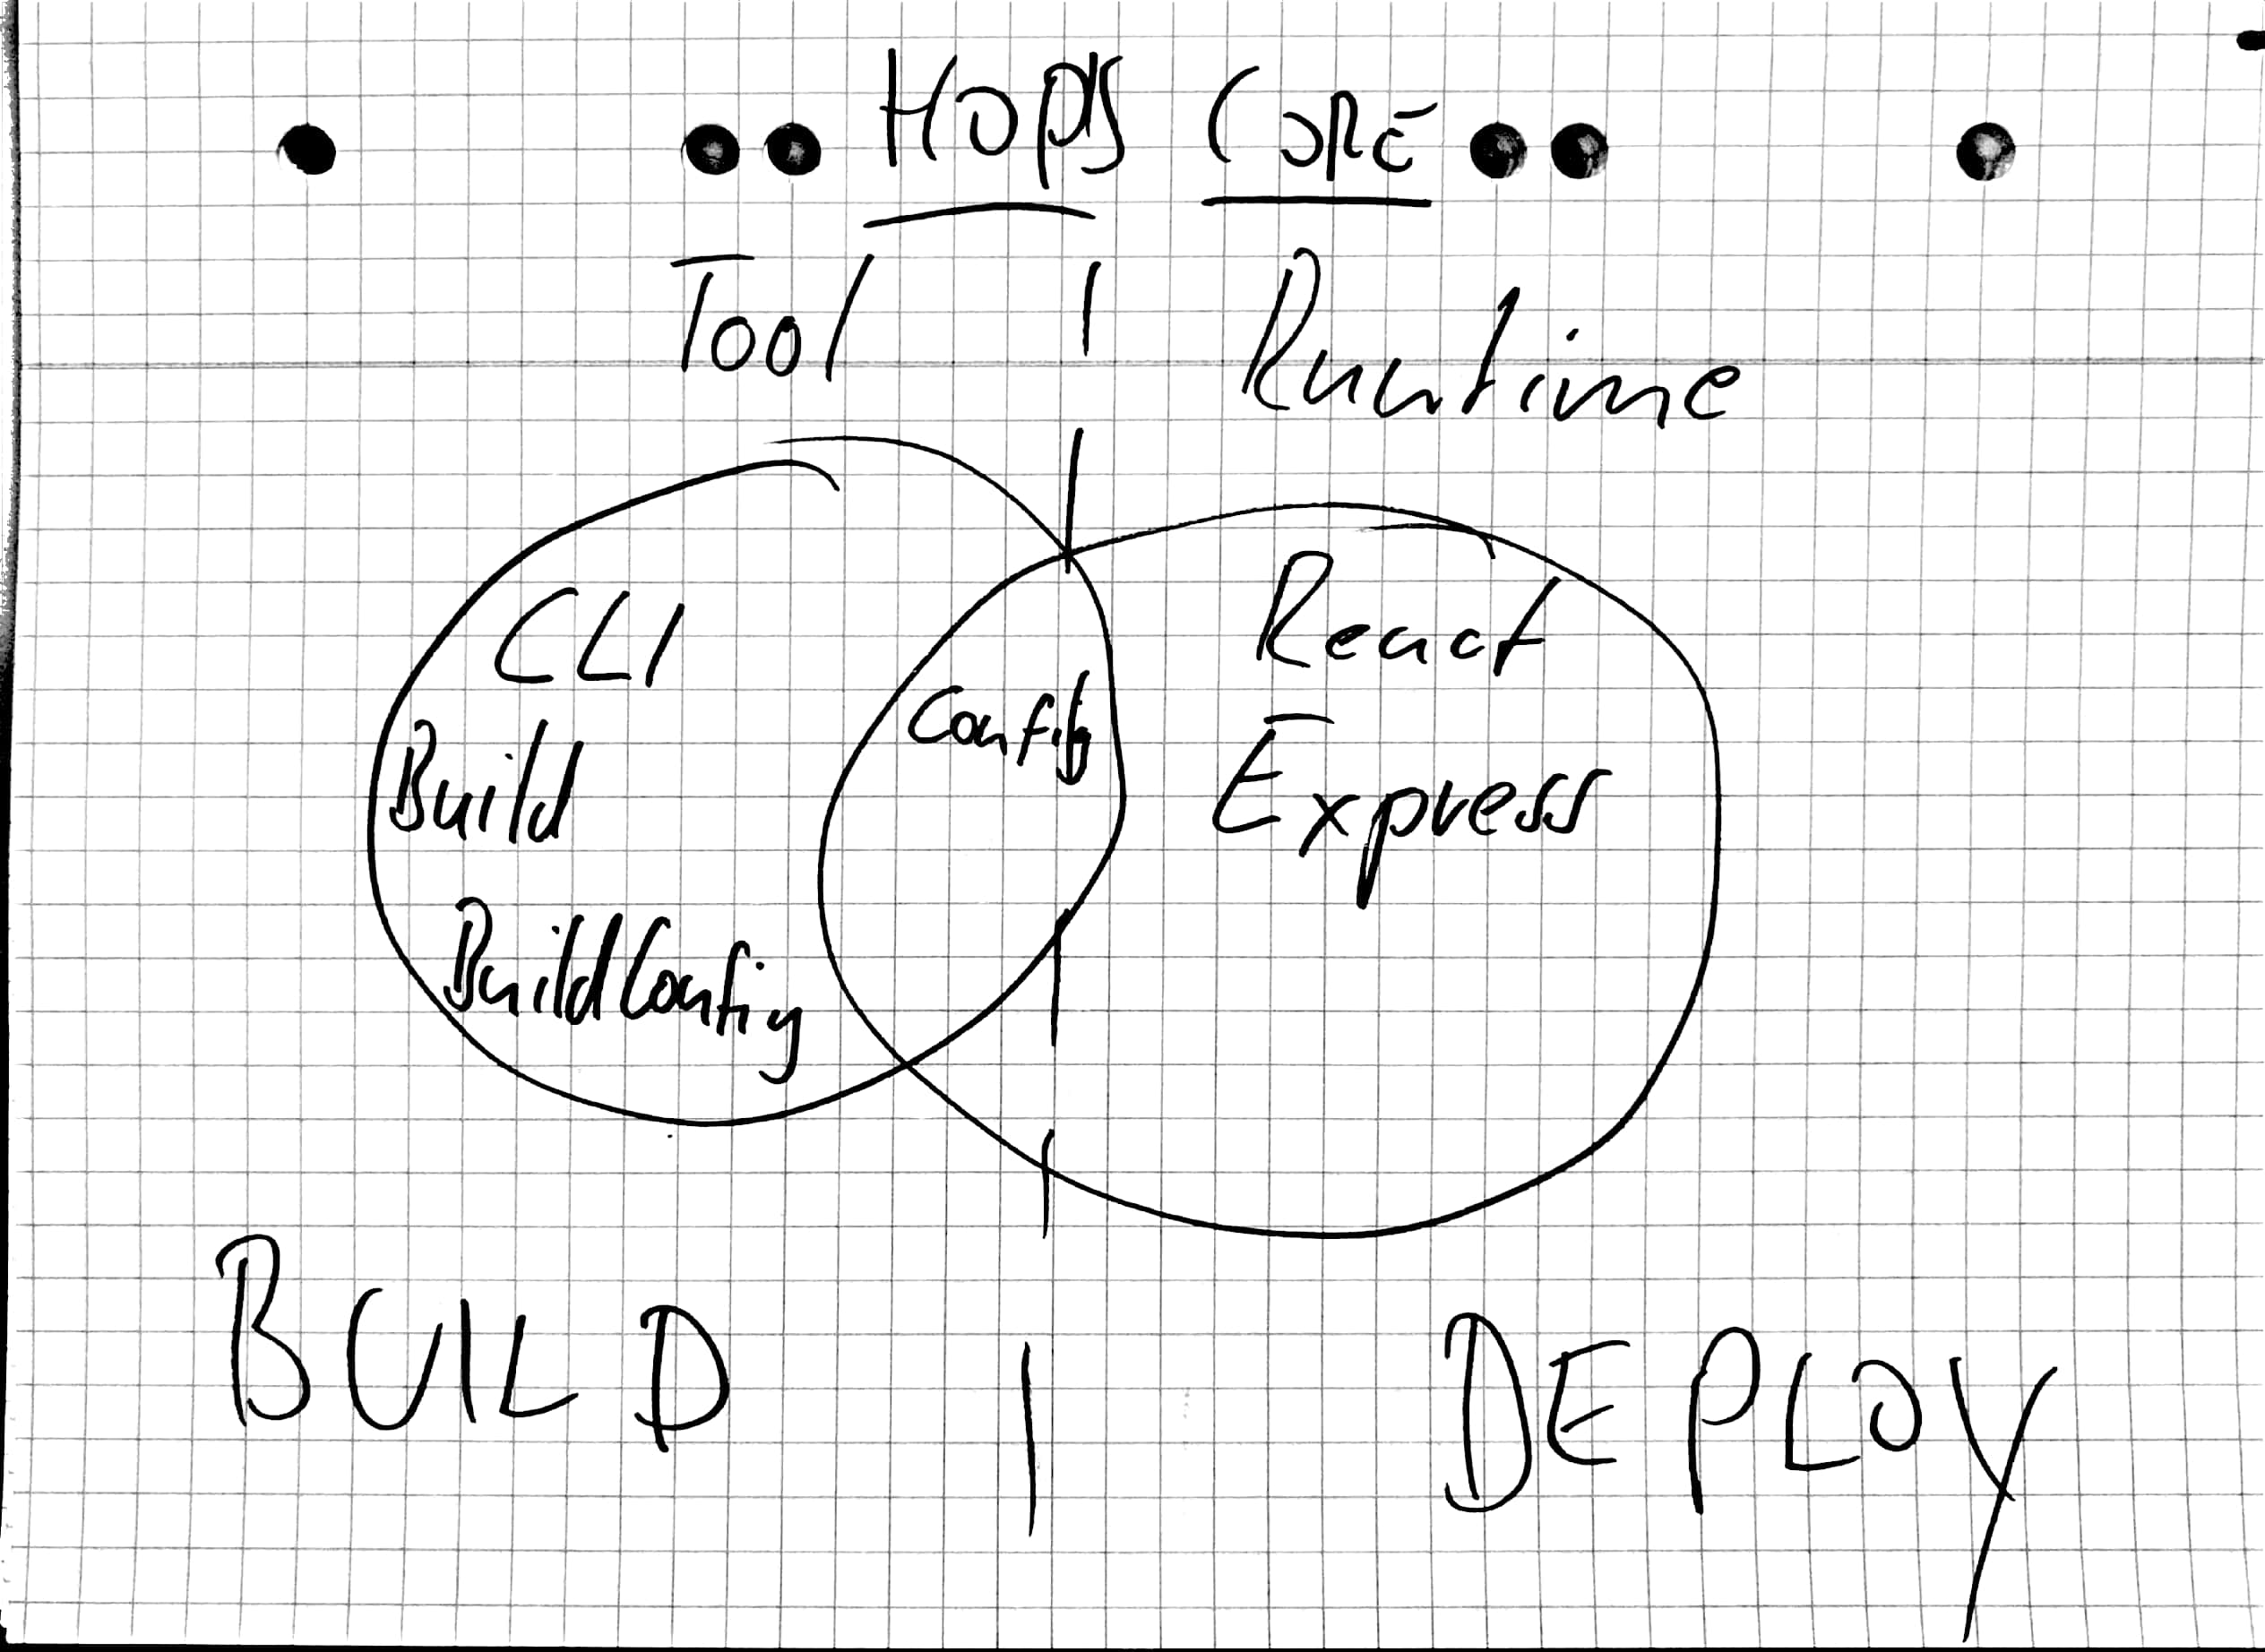 HOPS CORE
Tool | Runtime
CLI
Build
BuildConfig
Config
React
Express
BUILD | DEPLOY